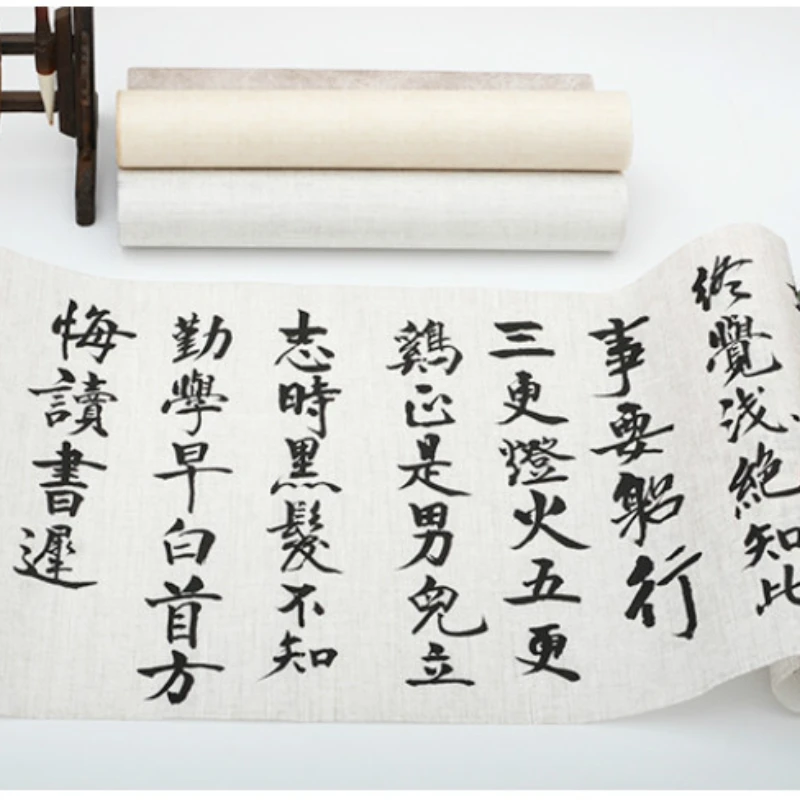 终覺浅絶知此
事要躬行
三更燈火五更
鷄正是男兒立
志時黑髮不知
勤學早白首方
悔讀書遲